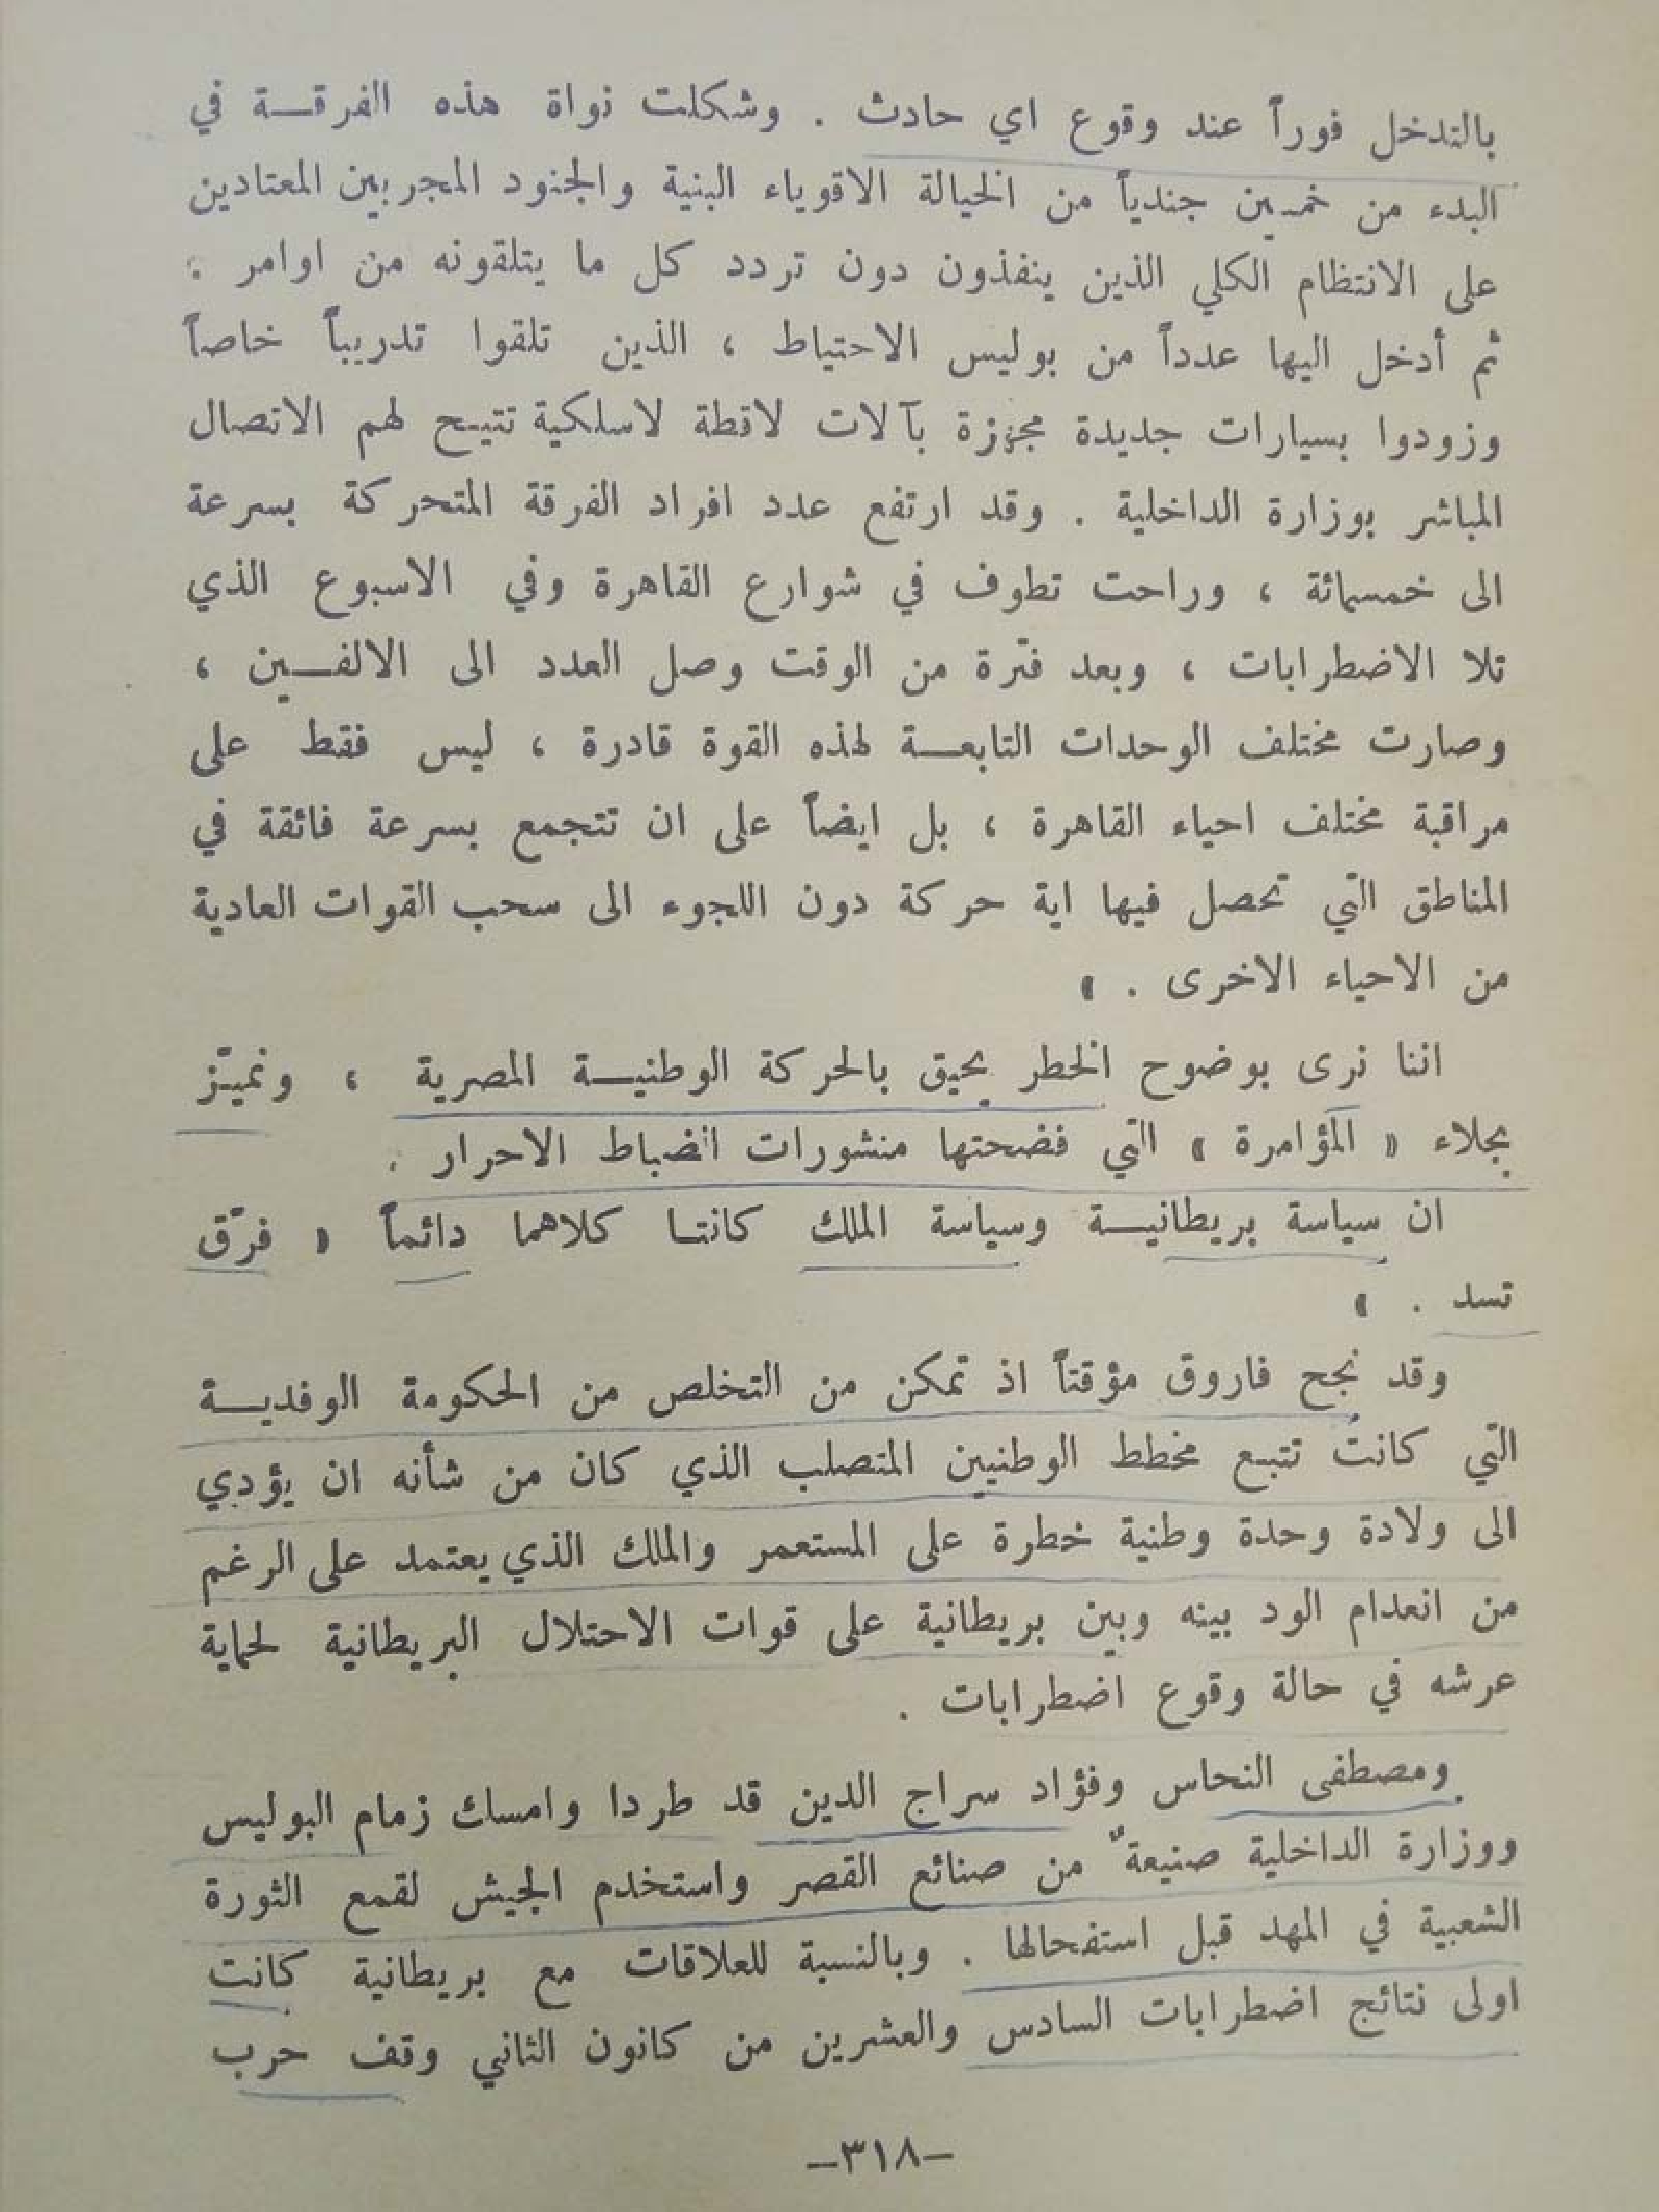 بالتدخل فوراً عند وقوع اي حادث . وشكلت نواة هذه الفرقة في
البدء من خمسين جندياً من الخيالة الاقوياء البنية والجنود المجربين المعتادين
على الانتظام الكلي الذين ينفذون دون تردد كل ما يتلقونه من اوامر :
ثم أدخل اليها عدداً من بوليس الاحتياط ، الذين تلقوا تدريباً خاصاً
وزودوا بسيارات جديدة مجهزة بآلات لاقطة لاسلكية تتيح لهم الاتصال
المباشر بوزارة الداخلية . وقد ارتفع عدد افراد الفرقة المتحركة بسرعة
الى خمسمائة ، وراحت تطوف في شوارع القاهرة وفي الاسبوع الذي
تلا الاضطرابات ، وبعد فترة من الوقت وصل العدد الى الالفين ،
وصارت مختلف الوحدات التابعة لهذه القوة قادرة ، ليس فقط على
مراقبة مختلف احياء القاهرة ، بل ايضاً على ان تتجمع بسرعة فائقة في
المناطق التي تحصل فيها اية حركة دون اللجوء الى سحب القوات العادية
من الاحياء الاخرى . »
اننا نرى بوضوح الخطر يحيق بالحركة الوطنية المصرية ، ونميّز
بجلاء « المؤامرة » التي فضحتها منشورات الضباط الاحرار .
ان سياسة بريطانية وسياسة الملك كانتا كلاهما دائماً « فرّق
تسد . »
وقد نجح فاروق مؤقتاً اذ تمكن من التخلص من الحكومة الوفدية
التي كانت تتبع مخطط الوطنيين المتصلب الذي كان من شأنه ان يؤدي
الى ولادة وحدة وطنية خطرة على المستعمر والملك الذي يعتمد على الرغم
من انعدام الود بينه وبين بريطانية على قوات الاحتلال البريطانية لحماية
عرشه في حالة وقوع اضطرابات .
ومصطفى النحاس وفؤاد سراج الدين قد طردا وامسك زمام البوليس
ووزارة الداخلية صنيعةٌ من صنائع القصر واستخدم الجيش لقمع الثورة
الشعبية في المهد قبل استفحالها . وبالنسبة للعلاقات مع بريطانية كانت
اولى نتائج اضطرابات السادس والعشرين من كانون الثاني وقف حرب
–٣١٨–